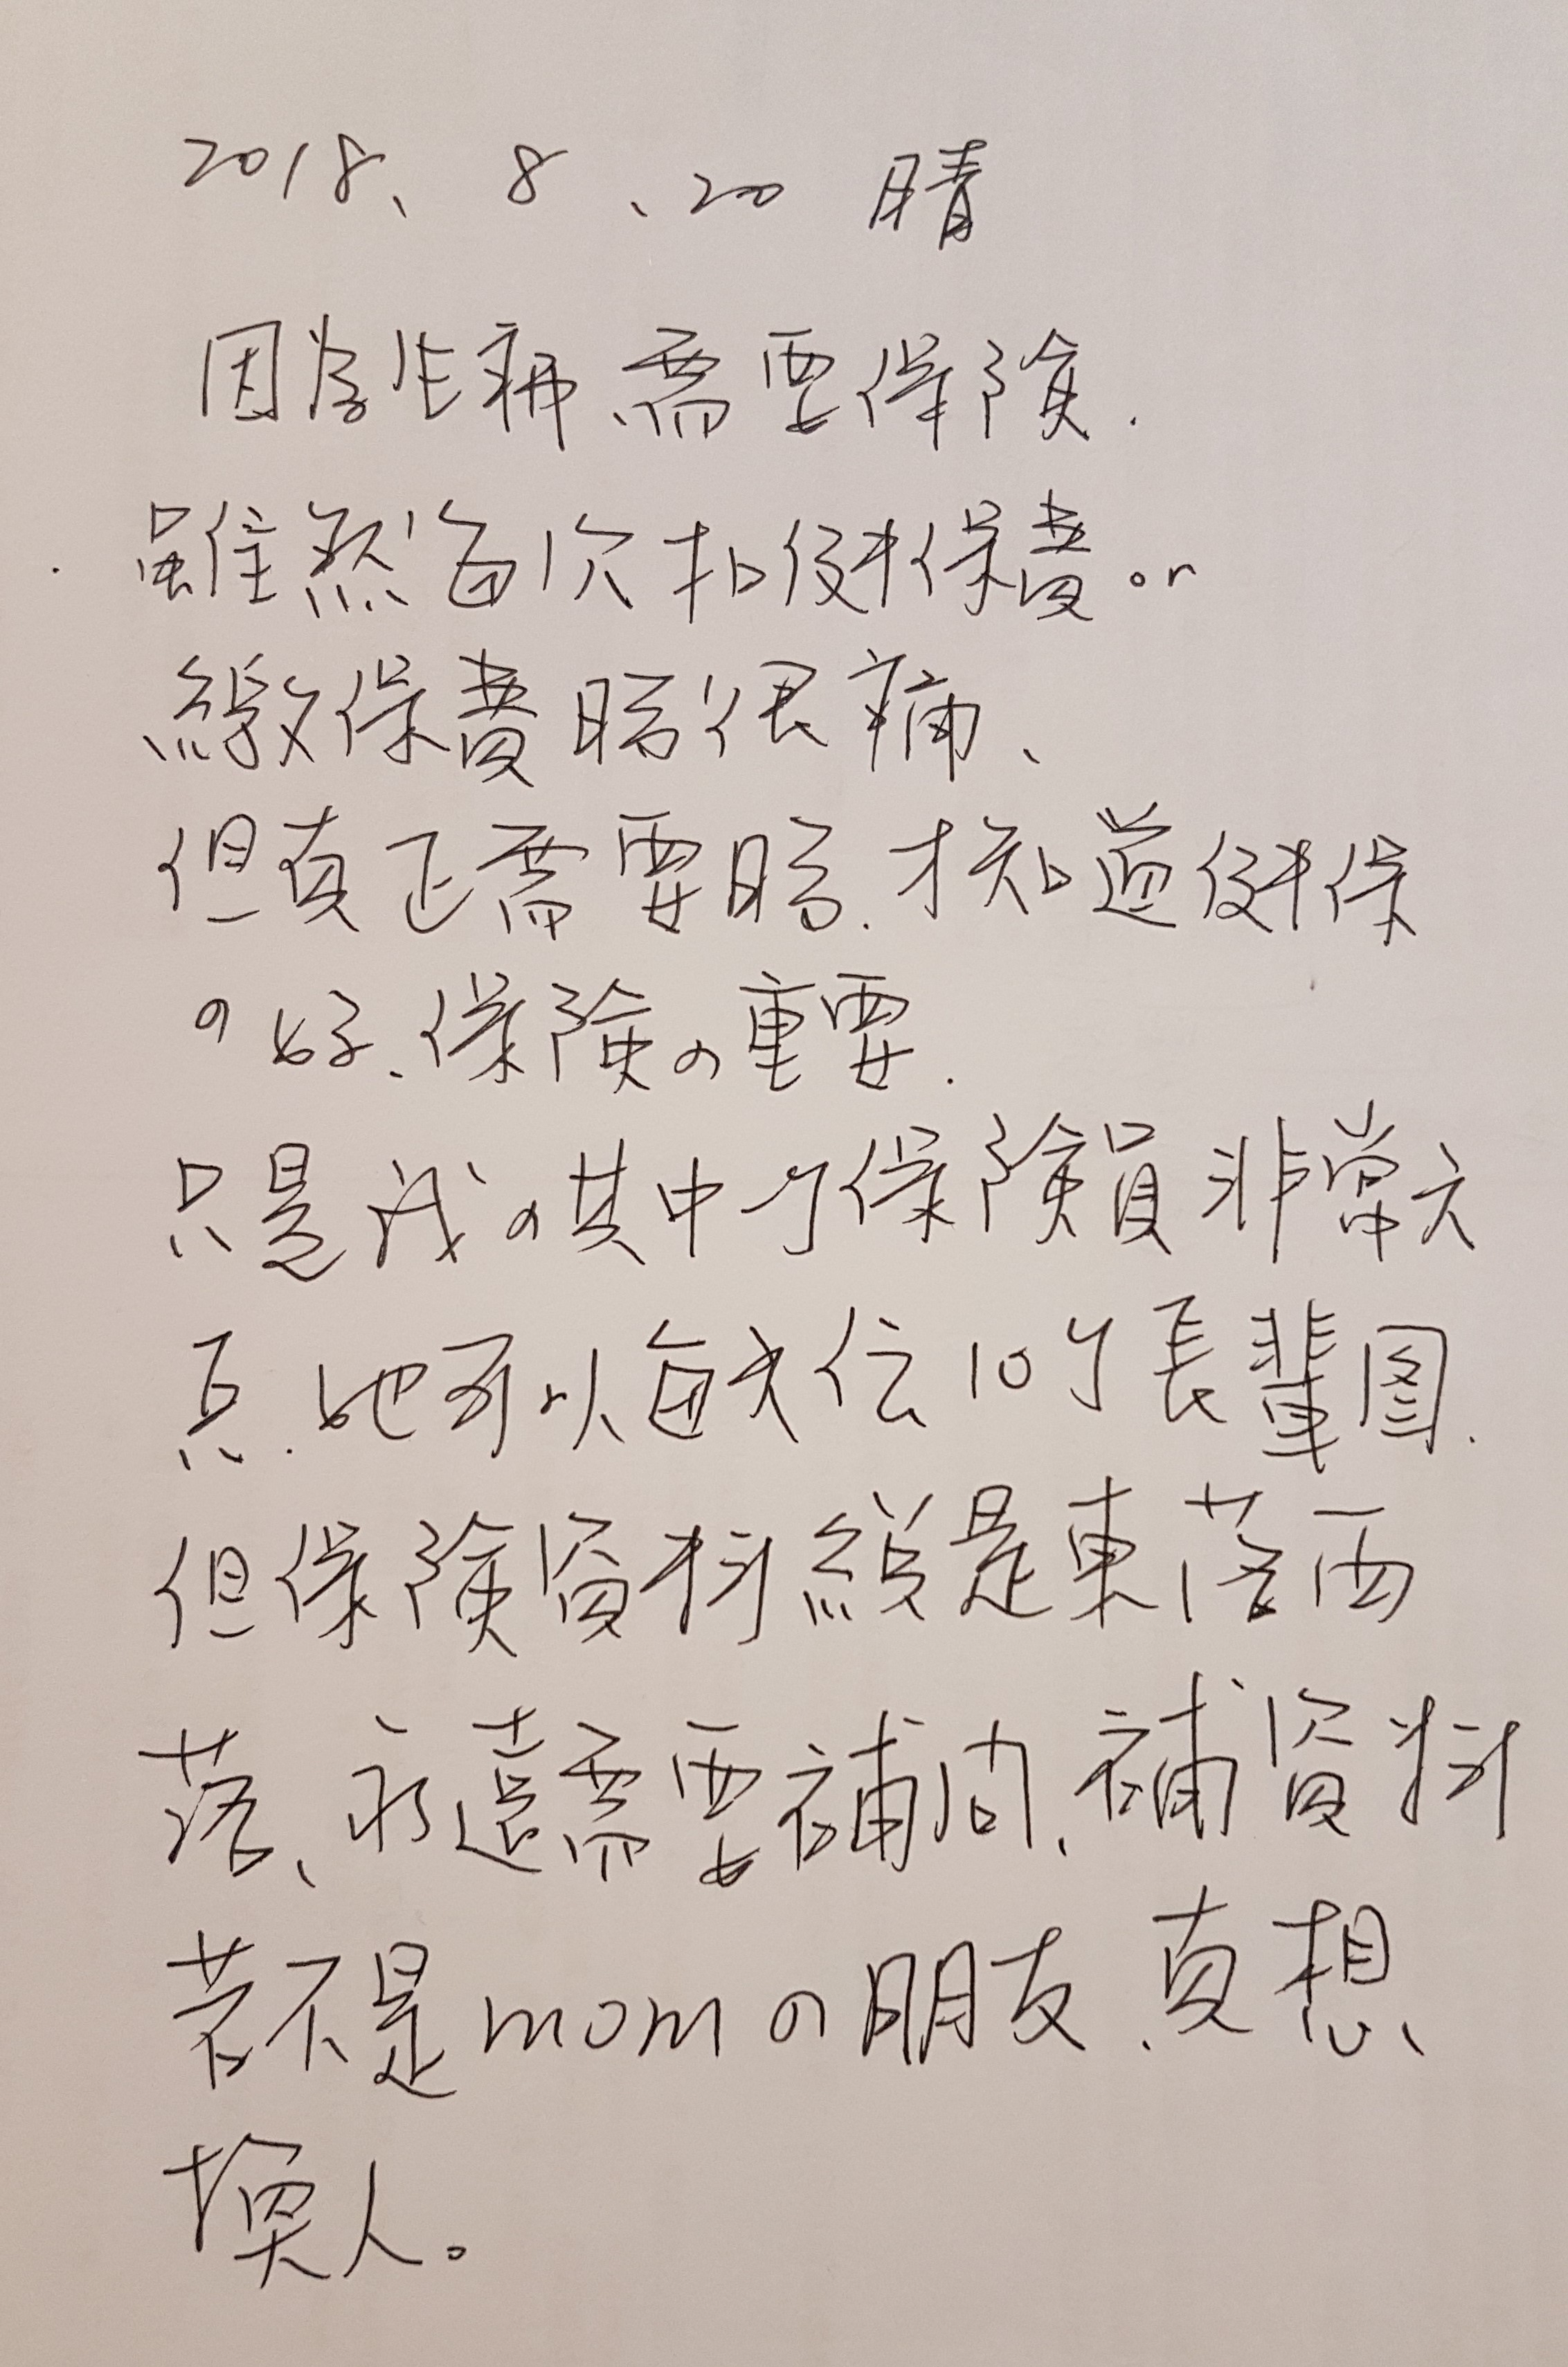 2018、8、20 晴
因為生病需要保險.
雖然每次扣健保費or
繳保費時很痛、
但真正需要時.才知道健保
の好、保險の重要.
只是我の其中一个保險員非常天
兵.她可以每天傳10个長輩图.
但保險資料總是東落西
落、永遠需要補問、補資料
若不是momの朋友、真想
換人。